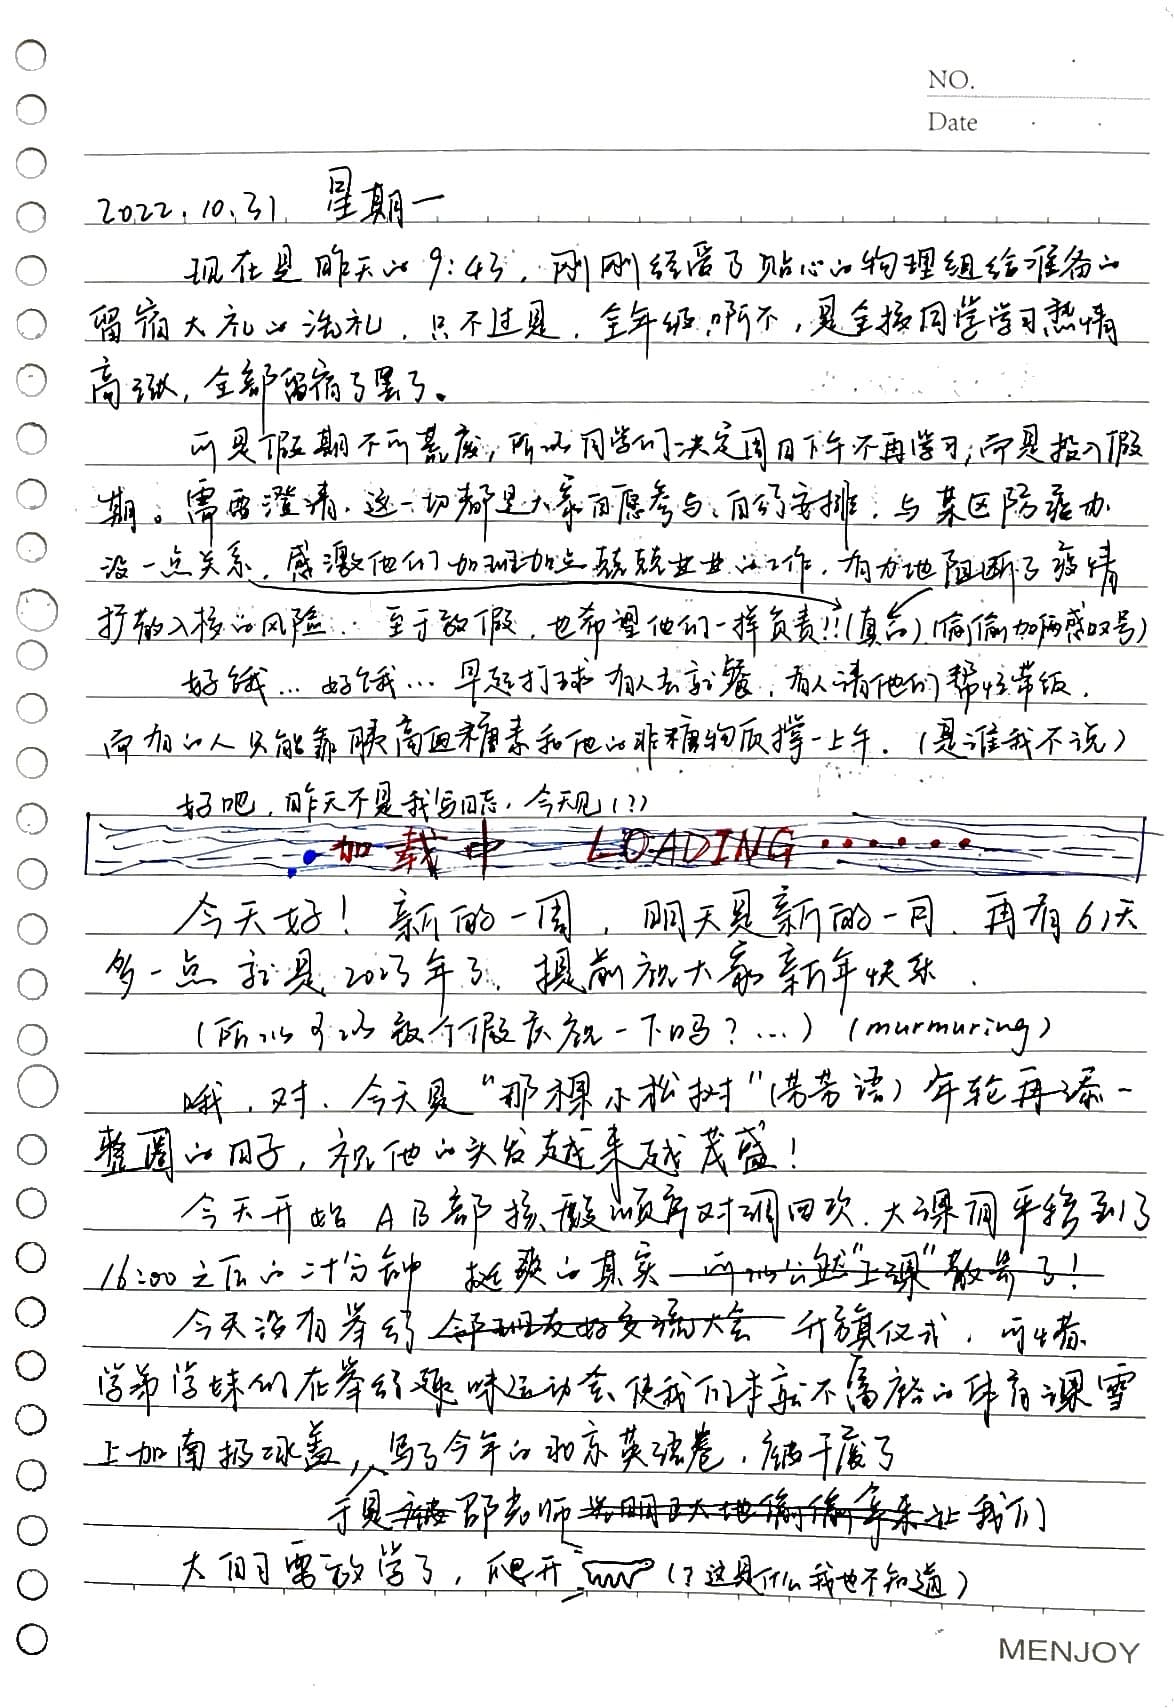 NO.
Date
2022.10.31. 星期一
现在是昨天的9:43,刚刚经受了贴心的物理组给准备的
留宿大礼的洗礼,只不过是,全年级,啊不,是全校同学学习热情
高涨,全部留宿了罢了。
可是假期不可荒废,所以同学们决定周日下午不再学习,而是投入假
期。需要澄清,这一切都是大家自愿参与、自行安排,与某区防疫办
没一点关系,感激他们加班加点兢兢业业的工作,有力地阻断了疫情
扩散入校的风险. 至于放假,也希望他们一样负责!!(真的)(偷偷加俩感叹号)
好饿...好饿... 早起打球有人去就餐,有人请他们帮忙带饭,
而有的人只能靠胰高血糖素和他的非糖物质撑一上午.(是谁我不说)
好吧,昨天不是我写日志,今天见(?)
加载中 LOADING........
今天好! 新的一周,明天是新的一月,再有61天
多一点就是2023年了,提前祝大家新年快乐.
(所以可以放个假庆祝一下吗?...)(murmuring)
哦,对,今天是“那棵小松树”(芳芳语)年轮再添一
整圈的日子,祝他的头发越来越茂盛!
今天开始AB部核酸顺序对调四次,大课间平移到了
16:00之后的二十分钟 挺爽的其实 所以公然“上课”散号了!
今天没有举行 邻班友好交流大会 升旗仪式,可惜
学弟学妹们在举行趣味运动会,使我们本就不富裕的体育课雪
上加南极冰盖,写了今年的北京英语卷,被干废了
于是 被 邵老师 光明正大地偷偷拿来 让我们
大白日雷放学了,爬开 (?这是什么我也不知道)
MENJOY